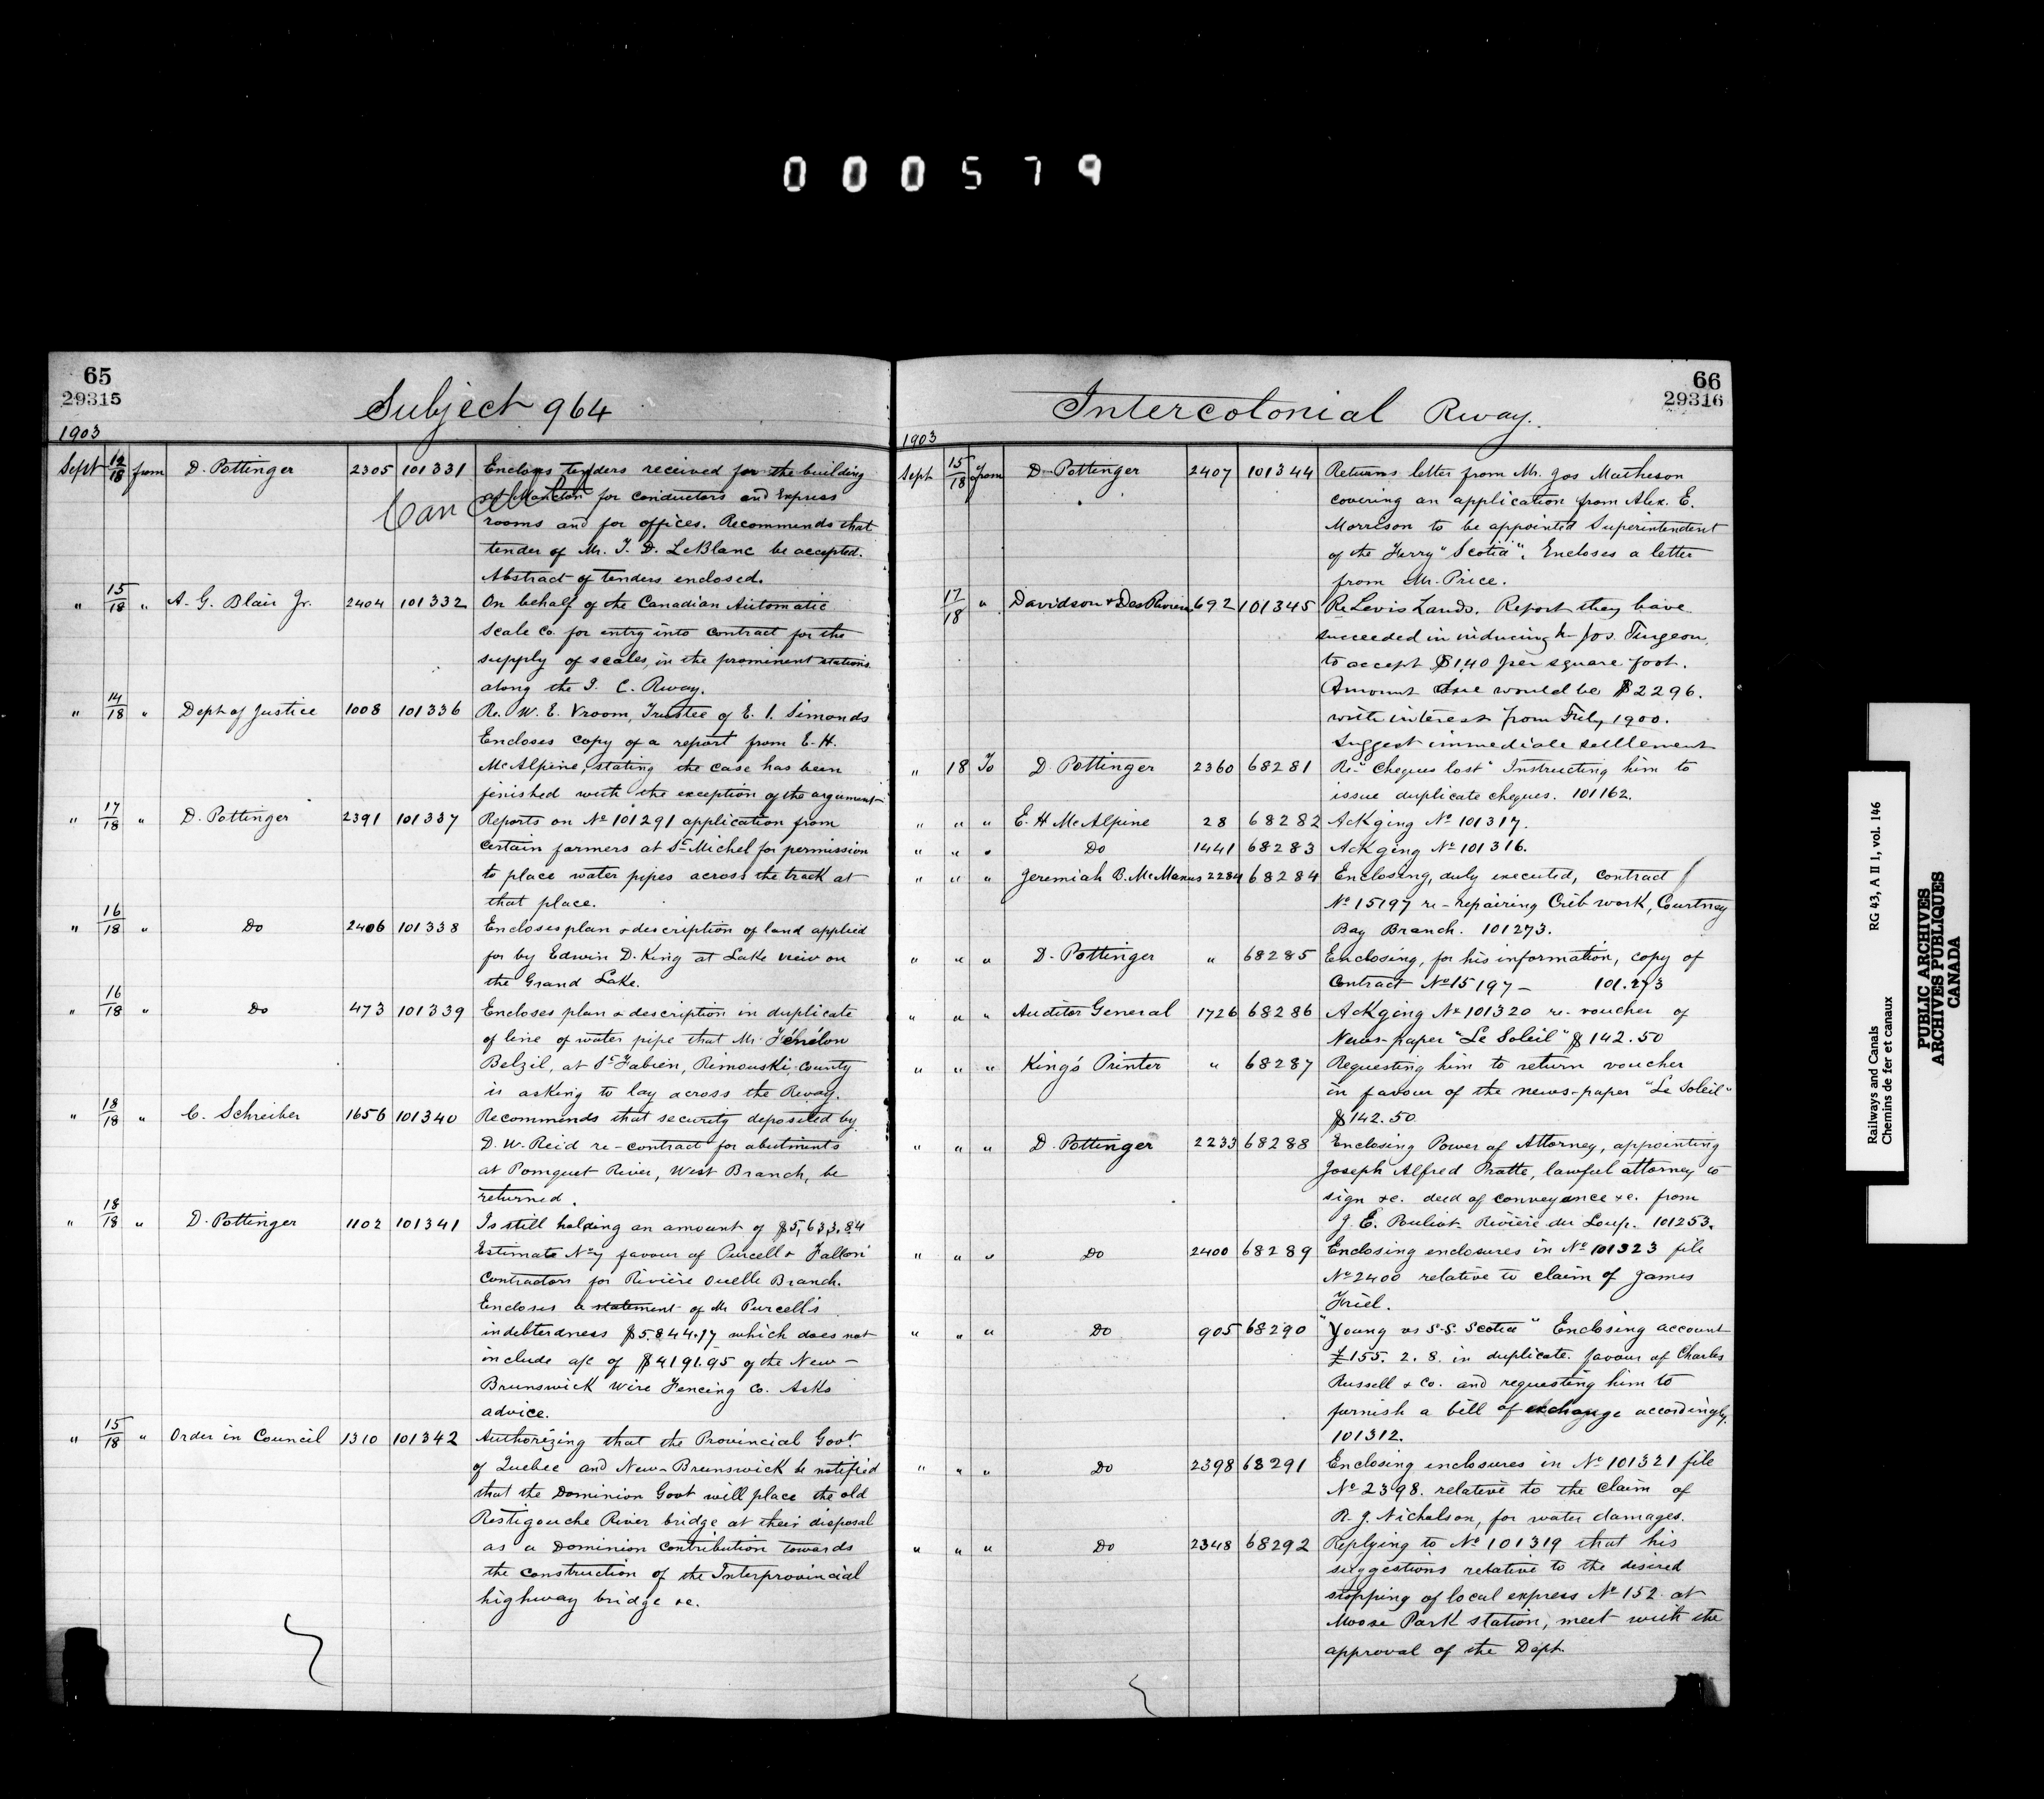 000579
65
29315
Subject 964
1903
Sept 14/18 from D. Pottinger 2305 101331 Encloses tenders received for the building
at Moncton for conductors and Express
Cancelled
rooms and for offices. Recommends that
tender of Mr. T. D. LeBlanc be accepted.
Abstract of tenders enclosed.
" 15/18 " A. G. Blair Jr. 2404 101332 On behalf of the Canadian Automatic
Scale Co. for entry into contract for the
supply of scales, in the prominent stations
along the I. C. Rway.
" 14/18 " Dept of Justice 1008 101336 Re. W. E. Vroom, Trustee of E. I. Simonds
Encloses copy of a report from E. H.
McAlpine, stating the case has been
finished with the exception of the argument
" 17/18 " D. Pottinger 2391 101337 Reports on No 101291 application from
certain farmers at St Michel for permission
to place water pipes across the track at
that place.
" 16/18 " Do 2406 101338 Encloses plan & description of land applied
for by Edwin D. King at Lake view on
the Grand Lake.
" 16/18 " Do 473 101339 Encloses plan & description in duplicate
of line of water pipe that Mr. Fénélon
Belzil, at St Fabien, Rimouski County
is asking to lay across the Rway.
" 18/18 " C. Schreiber 1656 101340 Recommends that security deposited by
D. W. Reid re-contract for abutments
at Pomquet River, West Branch, be
returned.
" 18/18 " D. Pottinger 1102 101341 Is still holding an amount of $5,633.84
Estimate No 7 favour of Purcell & Fallon
Contractors for Rivière Ouelle Branch.
Encloses a statement of Mr Purcell's
indebtedness $5.844.17 which does not
include a/c of $4191.95 of the New-
Brunswick Wire Fencing Co. Asks
advice.
" 15/18 " Order in Council 1310 101342 Authorizing that the Provincial Govt.
of Quebec and New-Brunswick be notified
that the Dominion Govt will place the old
Restigouche River bridge at their disposal
as a Dominion Contribution towards
the construction of the Interprovincial
highway bridge &c.
66
29316
Intercolonial Rway.
1903
Sept 15/18 From D. Pottinger 2407 101344 Returns letter from Mr. Jos Matheson
covering an application from Alex. E.
Morrison to be appointed Superintendent
of the Ferry "Scotia". Encloses a letter
from Mr. Price.
17/18 " Davidson & DesRivieres 692 101345 Re Levis Lands. Report they have
succeeded in inducing Jos. Turgeon,
to accept $1.40 per square foot.
Amount due would be $2296.
with interest from July 1900.
Suggest immediate settlement
" 18 To D. Pottinger 2360 68281 Re- "Cheques lost" Instructing him to
issue duplicate cheques. 101162.
" " " E. H McAlpine 28 68282 Ackging No 101317.
" " " Do 1441 68283 Ackging No 101316.
" " " Jeremiah B. McManus 2284 68284 Enclosing, duly executed, contract
No 15197 re-repairing Crib work, Courtney
Bay Branch. 101273.
" " " D. Pottinger " 68285 Enclosing, for his information, copy of
Contract No 15197 - 101.273
" " " Auditor General 1726 68286 Ackging No 101320 re-voucher of
News-paper "Le Soleil" $142.50
" " " King's Printer " 68287 Requesting him to return voucher
in favour of the news-paper "Le Soleil"
$142.50.
" " " D. Pottinger 2233 68288 Enclosing Power of Attorney, appointing
Joseph Alfred Pratte, lawful attorney to
sign &c. deed of conveyance &c. from
J. E. Pouliot Rivière du Loup. 101253.
" " " Do 2400 68289 Enclosing enclosures in No 101323 file
No 2400 relative to claim of James
Friel.
" " " Do 905 68290 "Young vs S.S. Scotia" Enclosing account
£155. 2. 8. in duplicate. favour of Charles
Russell & Co. and requesting him to
furnish a bill of exchange accordingly.
101312.
" " " Do 2398 68291 Enclosing enclosures in No 101321 file
No 2398. relative to the claim of
R. J. Nicholson, for water damages.
" " " Do 2348 68292 Replying to No 101319 that his
suggestions relative to the desired
stopping of local express No 152 at
Moose Park station, meet with the
approval of the Dept.
Railways and Canals RG 43, A II 1, vol. 146
Chemins de fer et canaux
PUBLIC ARCHIVES
ARCHIVES PUBLIQUES
CANADA